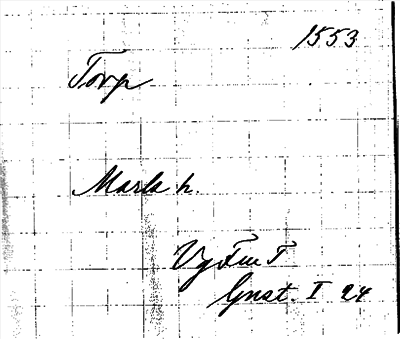 1553
Torp
Marks h.
Vg Fm T
Gust. I 24